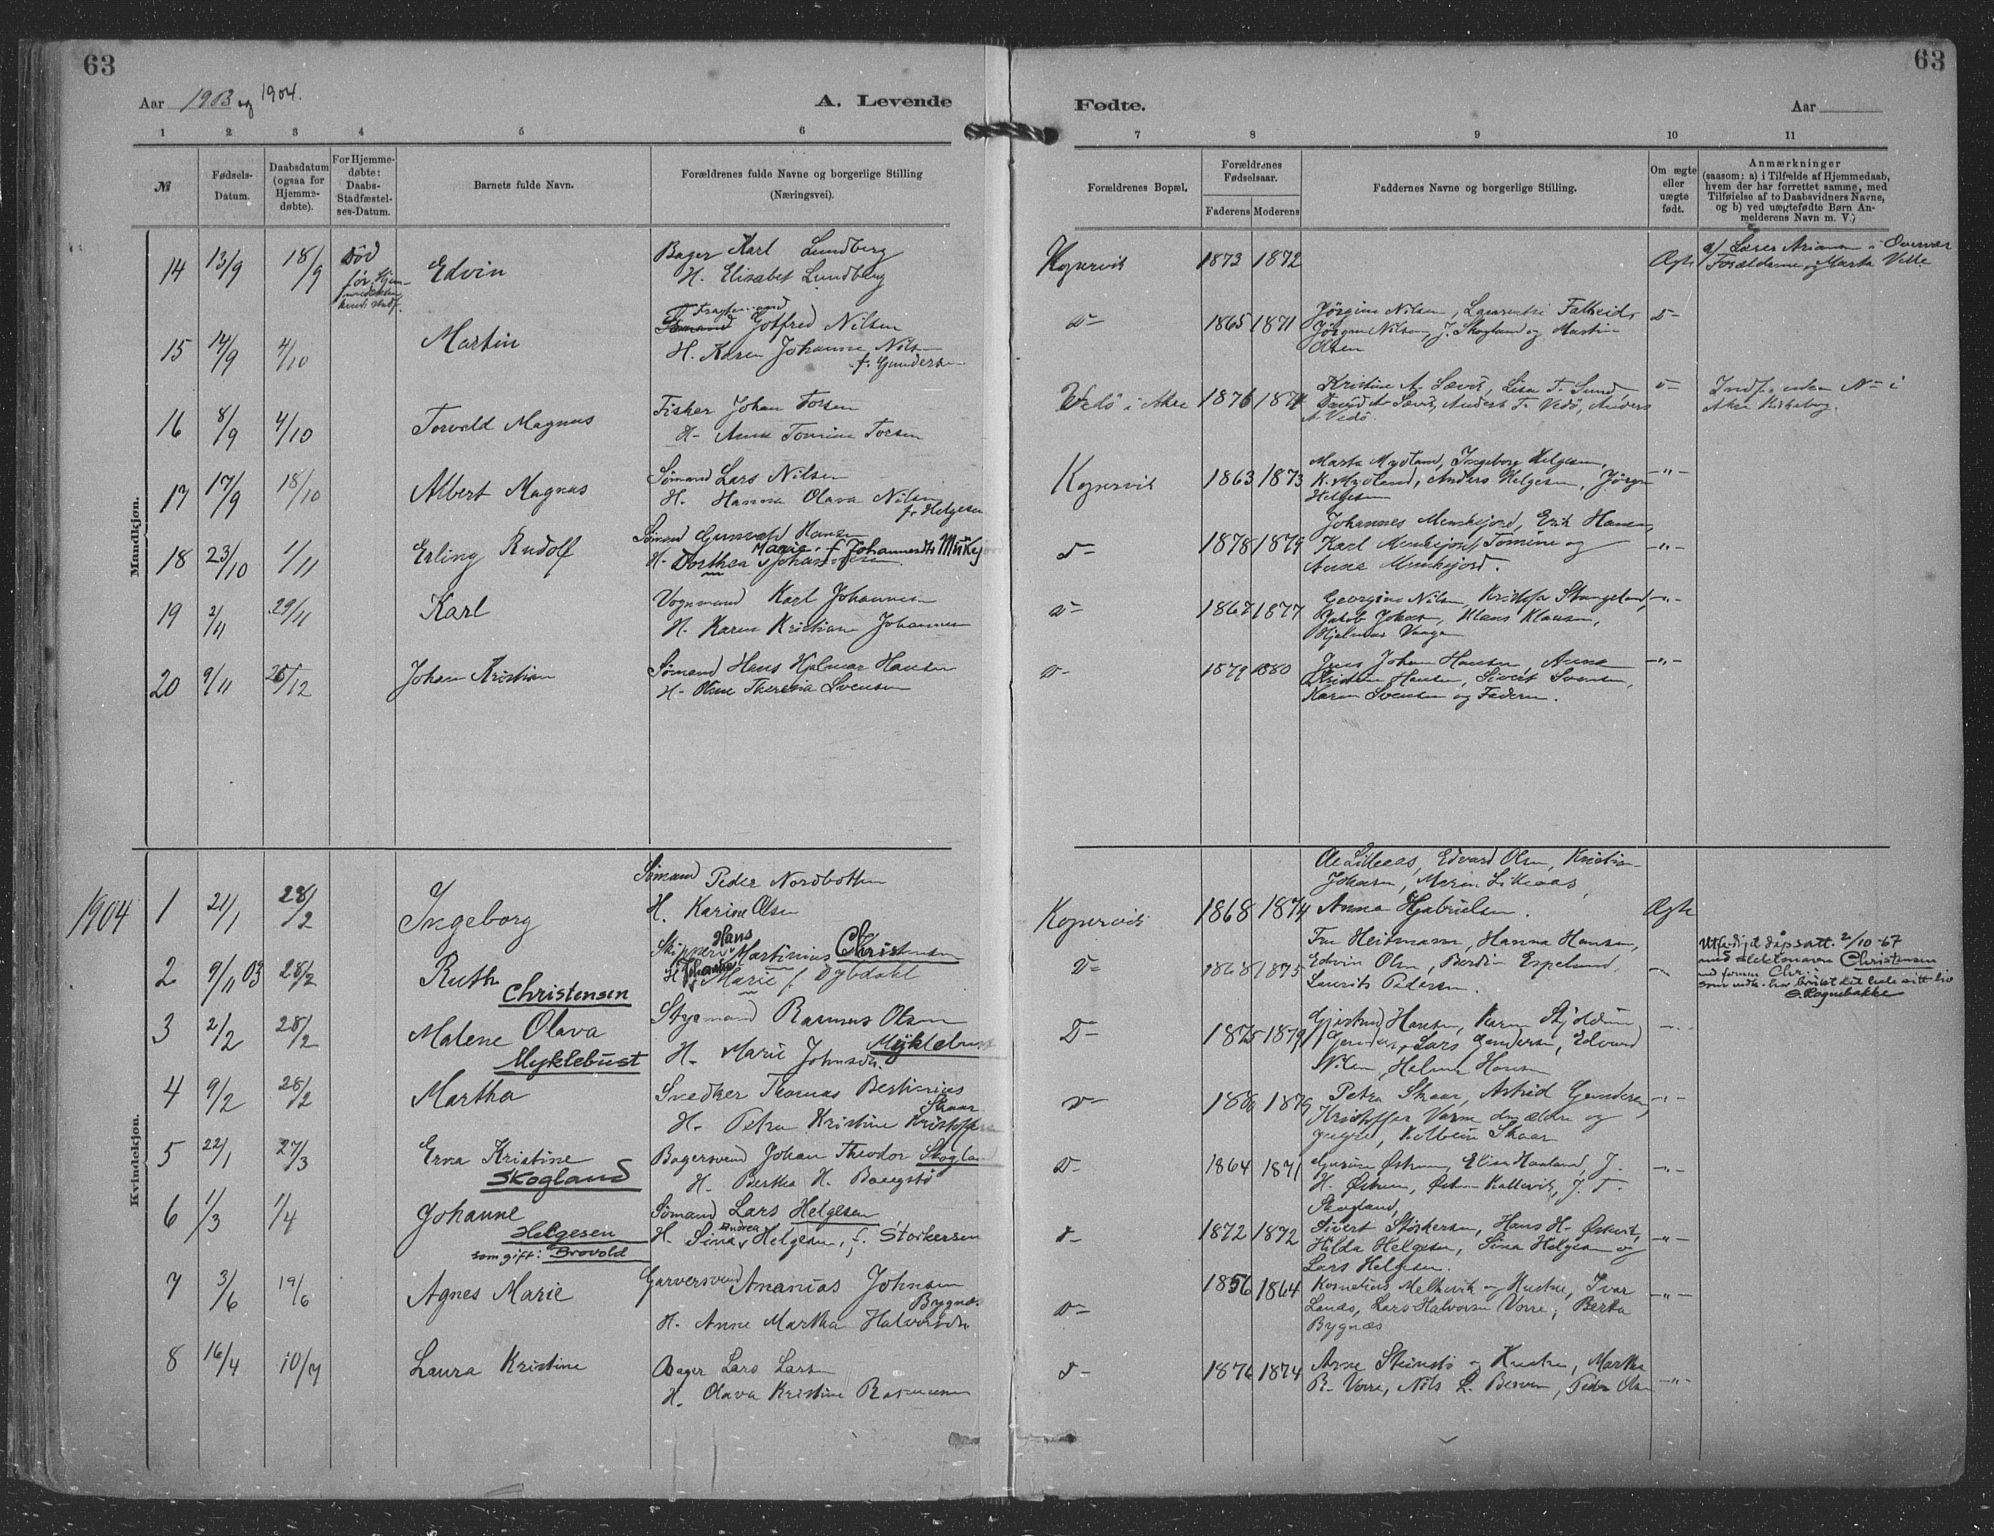 63
63
Aar 1903 og 1904.
A. Levende
Fødte.
Aar
1 2 3 4 5 6 7 8 9 10 11
№
Fødsels-
Datum.
Daabsdatum
(ogsaa for
Hjemme-
døbte).
For Hjemme-
døbte:
Daabs-
Stadfæstel-
ses-Datum.
Barnets fulde Navn.
Forældrenes fulde Navne og borgerlige Stilling
(Næringsvei).
Forældrenes Bopæl.
Forældrenes
Fødselsaar.
Faderens Moderens
Faddernes Navne og borgerlige Stilling.
Om ægte
eller
uægte
født.
Anmærkninger
(saasom: a) i Tilfælde af Hjemmedaab,
hvem der har forrettet samme, med
Tilføielse af to Daabsvidners Navne,
og b) ved uægtefødte Børn An-
melderens Navn m. V.)
Mandkjøn.
14 13/9 18/9 Død
før
Edvin
Bager Karl Lundberg
H. Elisabet Lundberg
Kopervik 1873 1872
Ægte
Forældrene, Marta Velle
15 14/9 4/10 Martin
Gotfred Nilsen
H. Karen Johanne Nilsen
f. Gundersen
D- 1865 1871
Jørgine Nilsen,
Jørgen Nilsen, J. Skogland og Martin
Olsen
D-
16 8/9 4/10 Torvald Magnus
Fisker Johan Torsen
H. Anna Tomine Torsen
Vedø i Akre 1876 1874
Kristine A. Sævik, Lisa T. Sund,
Vedø, Anders
Vedø
Indf. uden No i
Akre Kirkebog.
17 17/9 18/10 Albert Magnus
Sømand Lars Nilsen
H. Hanna Olava Nilsen
f. Helgesen
Kopervik 1863 1873
Marta Mydland, Ingeborg Helgesen,
K. Mydland, Anders Helgesen, Jørgen
Helgesen
-"-
18 23/10 1/11 Erling Rudolf
Sømand Gunvald Hansen
H. Dorthea Marie f. Johannesdtr
D- 1878 1879
Johannes Munkejord, Erik Hansen,
Karl Munkejord, Tomine og
Anna Munkejord.
-"-
19 2/11 29/11 Karl
Vognmand Karl Johannesen
H. Karen Kristiane Johannesen
D- 1867 1877
Georgine Nilsen, Kristofer Stangeland,
Jakob Johnsen, Klaus Klausen,
Hjelmer Vaage
-"-
20 9/11 26/12 Johan Kristian
Sømand Hans Hjalmar Hansen
H. Oline Theresia Svensen
D- 1879 1880
Jens Johan Hansen, Anna
Kristine Hansen, Sivert Svensen,
Karen Svensen og Faderen.
-"-
1904
Kvindekjøn.
1 21/1 28/2 Ingeborg
Sømand Peder Nordbotten
H. Karine Olsen
Kopervik 1868 1874
Edvard Olsen, Kristian
Johnsen,
Anna Gabrielsen.
Ægte
2 9/11 03 28/2 Ruth
Christensen
Skipper Hans Martinius Christensen
H. Johanne Marie f. Dybdahl
D- 1868 1875
Fru Heitmann, Hanna Hansen,
Edvin Olsen, Berdin Espeland,
Laurits Pedersen.
Utferdiget dåpsatt. 2/10-67
med slektsnavn Christensen
som vedk. har brukt det hele sitt liv
S. Rognebakke
3 2/2 28/2 Malene Olava
Myklebust
Styrmand Rasmus Olsen
Myklebust
H. Marie Johnsdtr.
D- 1875 1879
Gjertrud Hansen,
Lars Gundersen, Edvard
Nilsen,
4 9/2 28/2 Martha
Snedker Thomas Bertinius
Skaar
H. Petra Kristine Kristoffersen
D- 1880 1879
Petra Skaar, Astrid Gundersen,
Kristoffer Varne den ældre og
yngre, Kolbein Skaar
-"-
5 22/1 27/3 Erna Kristine
Skogland
Bagersvend Johan Theodor Skogland
H. Bertha H. Bangstø
D- 1864 1871
Elise Haaland, J.
H. Østrem, Østen Kallevik, J. T.
Skogland,
-"-
6 1/3 1/4 Johanne
Helgesen
som gift: Brovold
Sømand Lars Helgesen
H. Sina Andrea Helgesen, f. Storkersen
D- 1872 1872
Sivert Størkersen, Hans H. Østervik,
Hilda Helgesen, Sina Helgesen og
Lars Helgesen.
-"-
7 3/6 19/6 Agnes Marie
Garversvend Ananias Johnsen
Bygnæs
H. Anne Martha Halvorsdtr
D- 1856 1864
Kornelius Melkevik og Hustru, Ivar
Lande, Lars Halvorsen Vorre, Berta
Bygnæs
-"-
8 16/4 10/7 Laura Kristine
Bager Lars Larsen
H. Olava Kristine Rasmussen
D- 1876 1874
Arne Steinsbø og Hustru, Martha
R. Vorre, Nils L. Berven, Peder Olsen
-"-